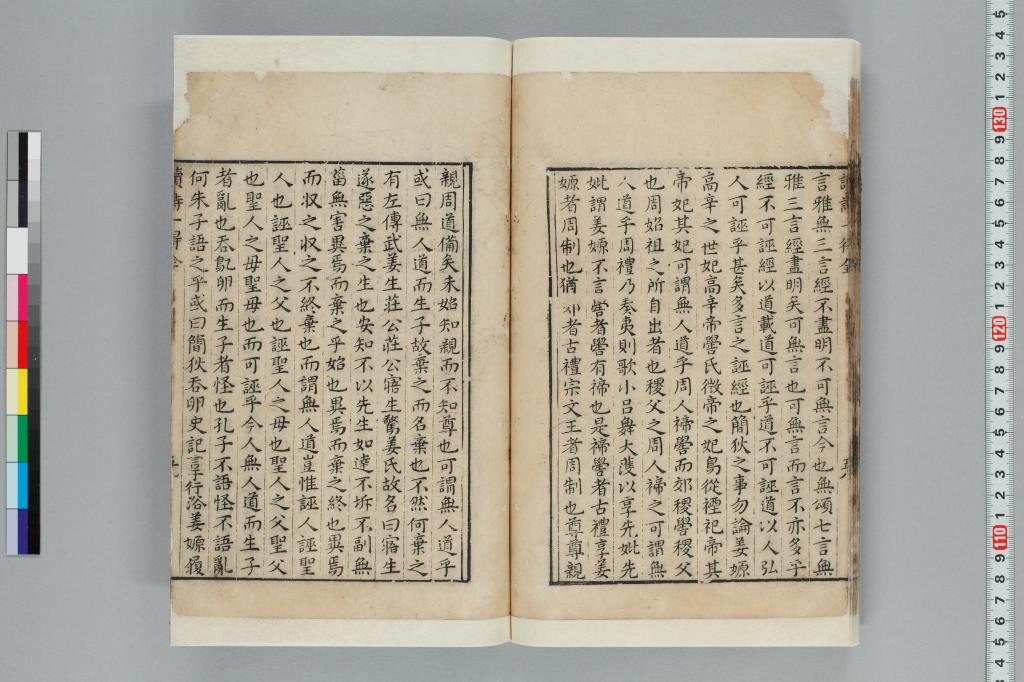 言雅無三言經不盡明不可無言今也無頌七言無
雅三言經盡明矣可無言也可無言而言不亦多乎
經不可誣經以道載道可誣乎道不可誣道以人弘
人可誣乎甚矣多言之誣經也簡狄之事勿論姜嫄
高辛之世妃高辛帝嚳氏徵帝之妃鳥從禋祀帝其
帝妃其妃可謂無人道乎周人禘嚳而郊稷嚳稷父
也周始祖之所自出者也稷父之周人禘之可謂無
人道乎周禮乃奏夷則歌小呂舞大濩以享先妣先
妣謂姜嫄不言嚳者嚳有禘也是禘嚳者古禮享姜
嫄者周制也猶郊者古禮宗文王者周制也尊尊親
親周道備矣未始知親而不知尊也可謂無人道乎
或曰無人道而生子故棄之而名棄也不然何棄之
有左傳武姜生莊公莊公寤生驚姜氏故名曰寤生
遂惡之棄之生也安知不以先生如逹不坼不副無
菑無害異焉而棄之乎始也異焉而棄之終也異焉
而収之収之不終棄也而謂無人道豈惟誣人誣聖
人也誣聖人之父也誣聖人之母也聖人之父聖父
也聖人之母聖母也而可誣乎今人無人道而生子
者亂也吞鳦卵而生子者怪也孔子不語怪不語亂
何朱子語之乎或曰簡狄吞卵史記言行浴姜嫄履